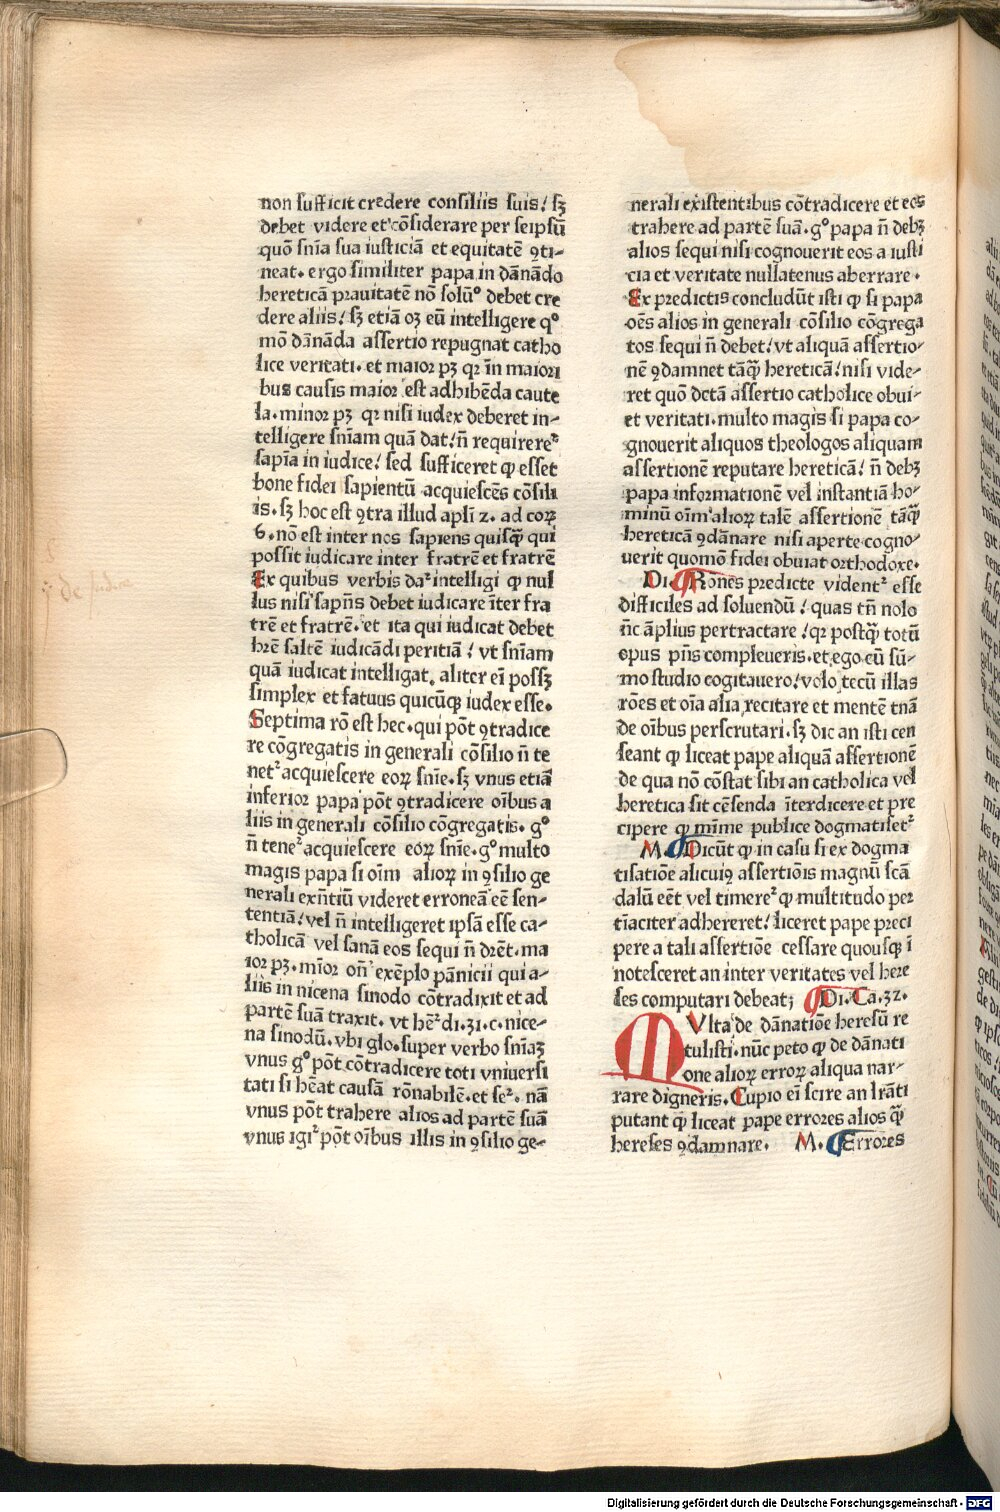 non sufficit credere consiliis suis! sꝫ
debet videre et cōsiderare per seipsū
quō snīa sua iusticiā et equitatē ꝯti-
neat. ergo similiter papa in dānādo
hereticā prauitatē nō solūᵒ debet cre
dere aliis! sꝫ etiā oꝫ eū intelligere qᵒ
mō dānāda assertio repugnat catho
lice veritati. et maior pꝫ qꝛ in maiori
bus causis maior est adhibēda caute
la. minor pꝫ qꝛ nisi iudex deberet in-
telligere snīam quā dat! n̄ requirereᵗ
sapīa in iudice! sed sufficeret ꝙ esset
bone fidei sapientū acquiescēs cōsili
is. sꝫ hoc est ꝯtra illud apli 2. ad coꝝ
6. nō est inter nos sapiens quisꝙ̄ qui
possit iudicare inter fratrē et fratrē
Ex quibus verbis daᵗ intelligi ꝙ nul
lus nisi sapn̄s debet iudicare īter fra
trē et fratrē. et ita qui iudicat debet
hr̄e saltē iudicādi peritiā! vt snīam
quā iudicat intelligat. aliter eī possꝫ
simplex et fatuus quicūqꝫ iudex esse.
Septima rō est hec. qui pōt ꝯtradice
re cōgregatis in generali cōsilio n̄ te
netᵗ acquiescere eoꝝ snīe. sꝫ vnus etiā
inferior papa pōt ꝯtradicere oībus a
liis in generali cōsilio cōgregatis. gᵒ
n̄ teneᵗ acquiescere eoꝝ snīe. gᵒ multo
magis papa si oīm alioꝝ in ꝯsilio ge
nerali exn̄tiū videret erroneā eē sen-
tentiā! vel n̄ intelligeret ipsā esse ca-
tholicā vel sanā eos sequi n̄ dr̄et. ma
ior pꝫ. mīor on̄ exēplo pānicii qui a-
liis in nicena sinodo cōtradixit et ad
partē suā traxit. vt hēᵗ di. 31. c. nice-
na sinodū. vbi glo. super verbo snīaꝫ
vnus gᵒ pōt cōtradicere toti vniuersi
tati si hēat causā rōnabilē. et seᵗ. nā
vnus pōt trahere alios ad partē suā
vnus igiᵗ pōt oībus illis in ꝯsilio ge-
nerali existentibus cōtradicere et eos
trahere ad partē suā. gᵒ papa n̄ debꝫ
alios sequi nisi cognouerit eos a iusti
cia et veritate nullatenus aberrare.
Ex predictis concludūt isti ꝙ si papa
oēs alios in generali cōsilio cōgrega
tos sequi n̄ debet! vt aliquā assertio-
nē ꝯdamnet tāꝙ̄ hereticā! nisi vide-
ret quō dctā assertio catholice obui-
et veritati. multo magis si papa co-
gnouerit aliquos theologos aliquam
assertionē reputare hereticā! n̄ debꝫ
papa informationē vel instantiā ho-
minū oīm alioꝝ talē assertionē tāꝙ̄
hereticā ꝯdānare nisi aperte cogno-
uerit quomō fidei obuiat orthodoxe.
Di. Rōnes predicte videntᵗ esse
difficiles ad soluendū! quas tn̄ nolo
n̄c āplius pertractare! qꝛ postꝙ̄ totū
opus pn̄s compleueris. et ego cū sū-
mo studio cogitauero! volo tecū illas
rōes et oīa alia recitare et mentē tuā
de oībus perscrutari. sꝫ dic an isti cen
seant ꝙ liceat pape aliquā assertionē
de qua nō cōstat sibi an catholica vel
heretica sit cēsenda īterdicere et pre
cipere ꝙ mīme publice dogmatisetᵗ
M. Dicūt ꝙ in casu si ex dogma
tisatiōe alicuiꝯ assertiōis magnū scā
dalū eēt vel timereᵗ ꝙ multitudo per
tīaciter adhereret! liceret pape preci
pere a tali assertiōe cessare quousqꝫ ī
notesceret an inter veritates vel here
ses computari debeat; Di. Ca. 32.
MVlta de dānatiōe heresū re
tulisti. nūc peto ꝙ de dānati
one alioꝝ erroꝝ aliqua nar-
rare digneris. Cupio eī scire an lrāti
putant ꝙ liceat pape errores alios ꝙ̄
hereses ꝯdamnare. M. Errores
de Iudice
Digitalisierung gefördert durch die Deutsche Forschungsgemeinschaft - DFG